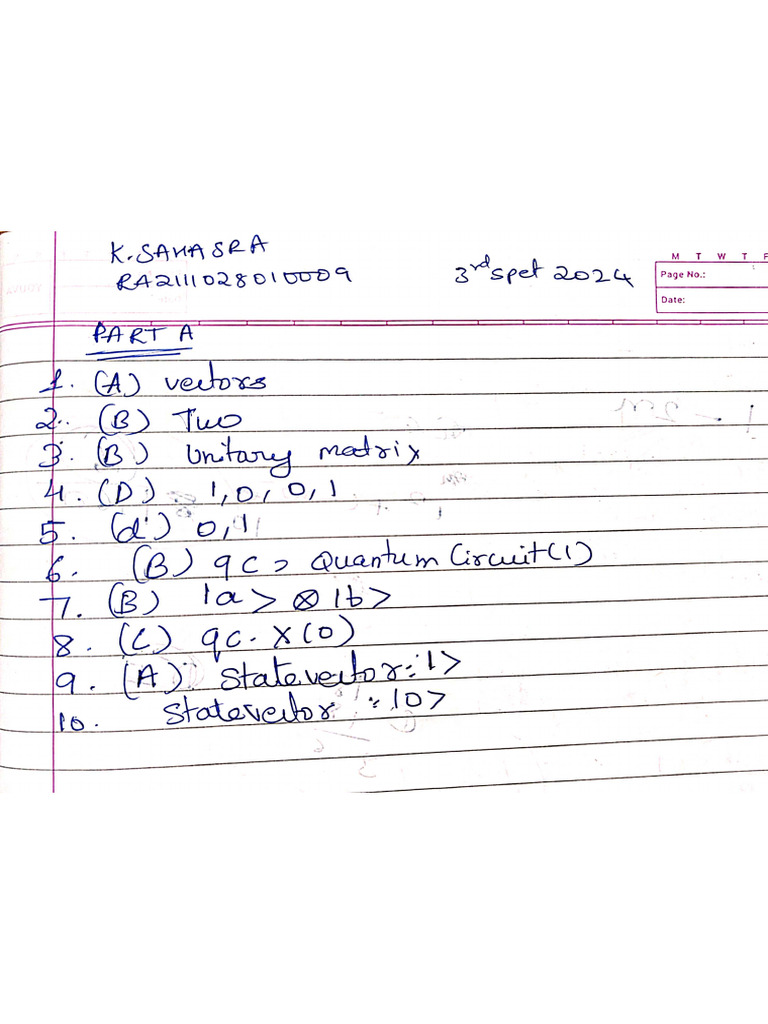 K. SAHASRA
RA2111028010009
3rd spet 2024
M T W T F
Page No.:
Date:
PART A
1. (A) vectors
2. (B) Two
3. (B) Unitary matrix
4. (D) 1, 0, 0, 1
5. (d) 0, 1
6. (B) qc = Quantum Circuit (1)
7. (B) |a> ⊗ |b>
8. (C) qc. x (0)
9. (A) Statevector: 1>
10. Statevector : |0>